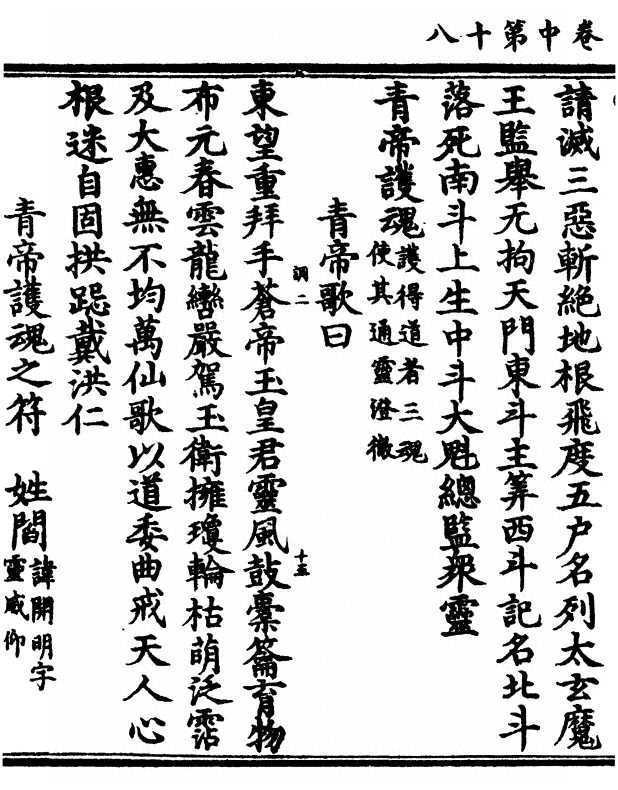 卷中第十八
請滅三惡斬絕地根飛度五户名列太玄魔
王監舉无拘天門東斗主筭西斗記名北斗
落死南斗上生中斗大魁總監衆靈
青帝護魂護得道者三魂使其通靈澄徹
青帝歌曰
東望重拜手蒼帝玉皇君靈風鼓橐籥育物
調二
十五
布元春雲龍轡嚴駕玉衛擁瓊輪枯萌泛霑
及大惠無不均萬仙歌以道委曲戒天人心
根迷自固拱跽戴洪仁
青帝護魂之符 姓閻諱開明字靈威仰